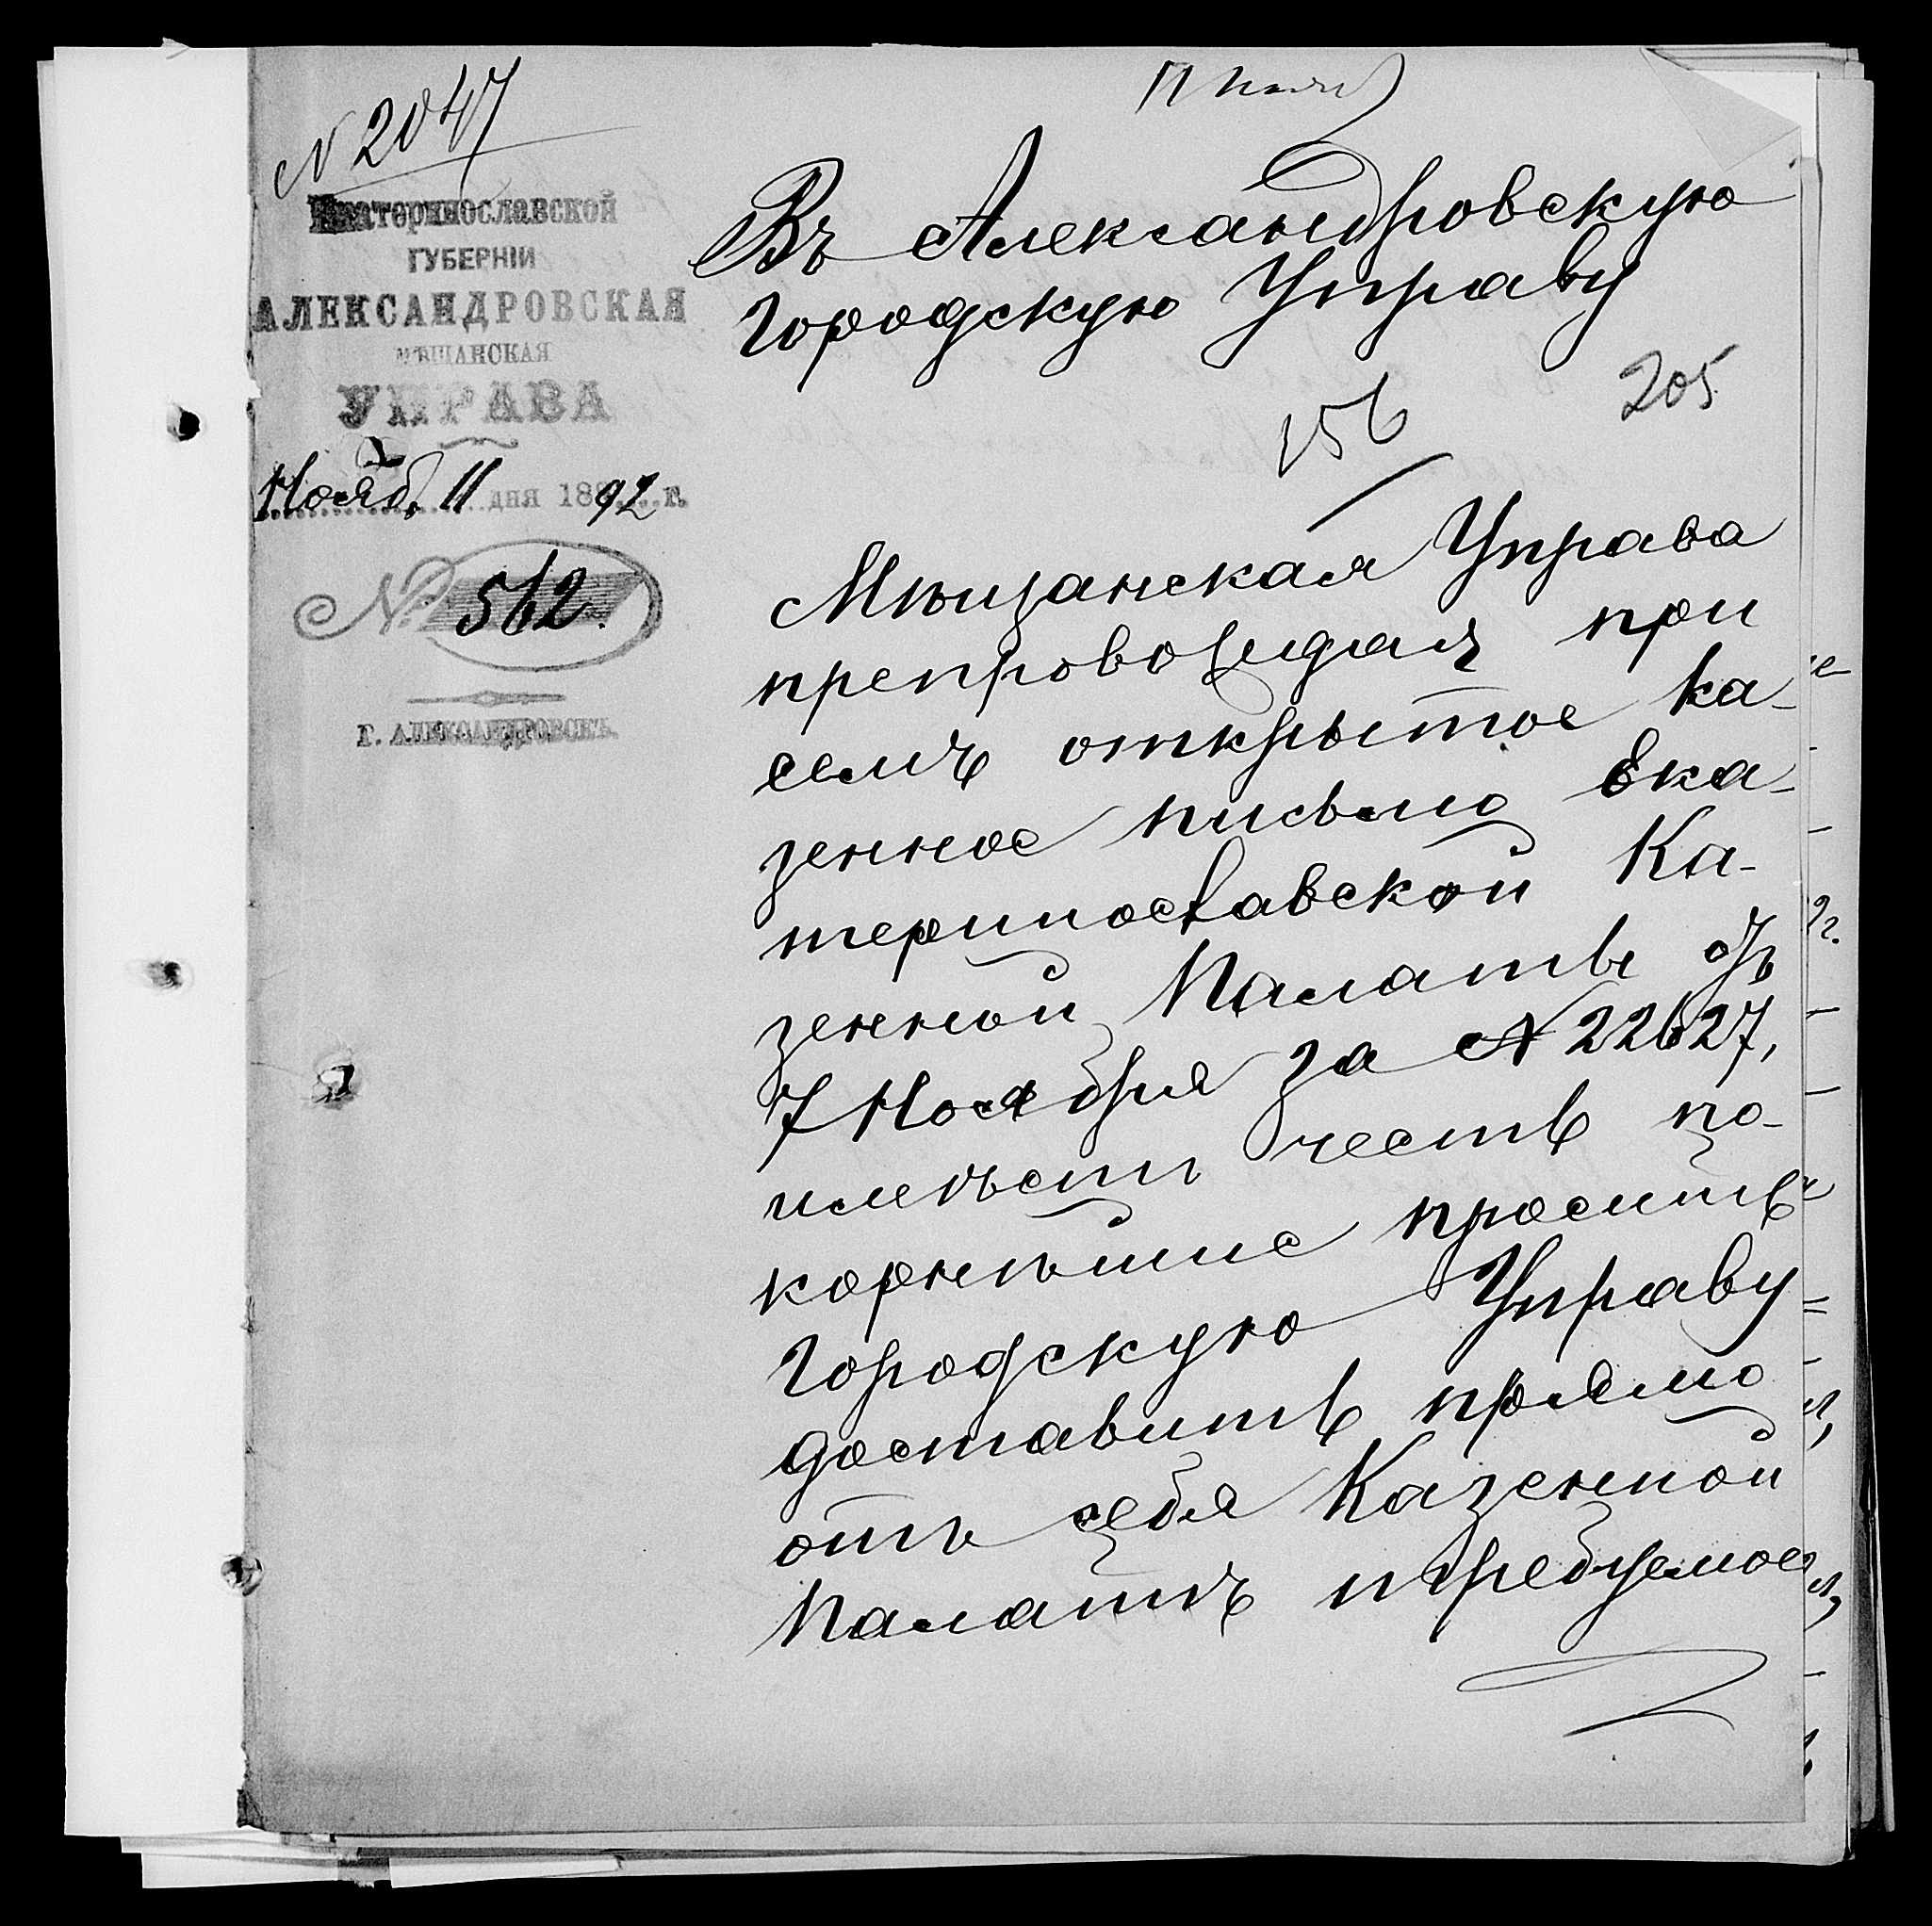 N 2047
Екатеринославской
ГУБЕРНІИ
АЛЕКСАНДРОВСКАЯ
МѢЩАНСКАЯ
УПРАВА
Нояб. 11 дня 1892 г.
№ 562.
Г. АЛЕКСАНДРОВСКЪ.
Въ Александровскую
Городскую Управу
156
205
Мѣщанская Управа
препровождая при
семъ открытое ка-
зенное письмо Ека-
теринославской Ка-
зенной Палаты отъ
7 Ноября за N 22627,
имѣетъ честь по-
корнѣйше просить
Городскую Управу
доставить прямо
отъ себя Казенной
Палатѣ требуемое